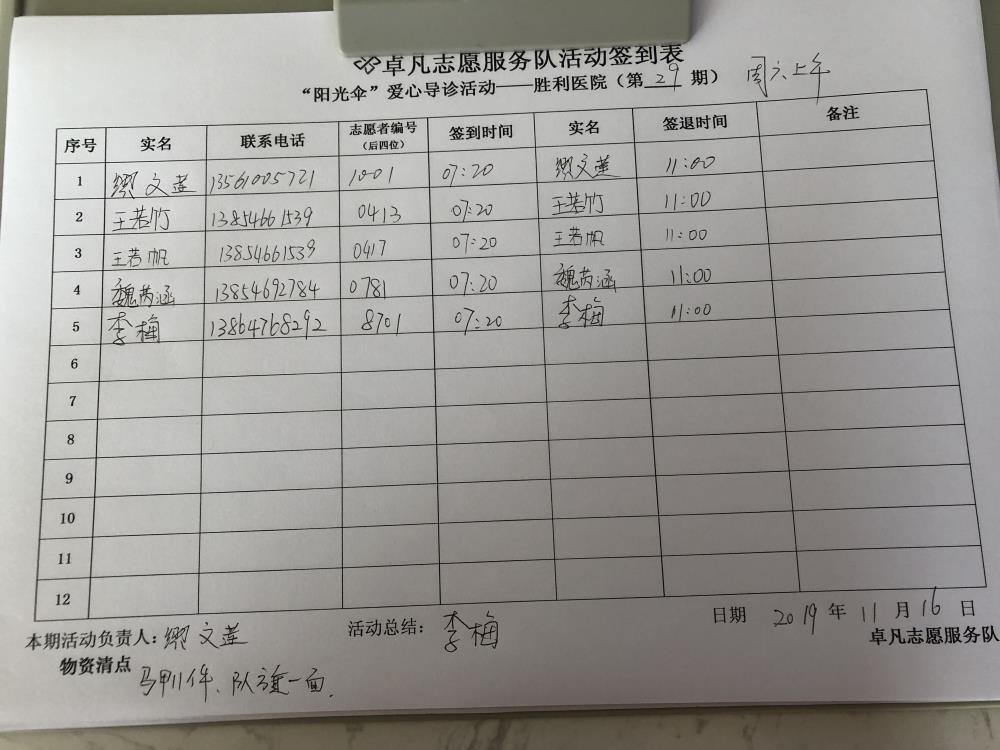 卓凡志愿服务队活动签到表
“阳光伞”爱心导诊活动——胜利医院（第29期） 周六上午
序号 实名 联系电话 志愿者编号（后四位） 签到时间 实名 签退时间 备注
1 缪文莲 13561005721 1001 07:20 缪文莲 11:00
2 王若竹 13854661539 0413 07:20 王若竹 11:00
3 王若帆 13854661539 0417 07:20 王若帆 11:00
4 魏芮涵 13854692784 0781 07:20 魏芮涵 11:00
5 李梅 13864768292 8701 07:20 李梅 11:00
6
7
8
9
10
11
12
本期活动负责人：缪文莲 活动总结：李梅 日期 2019年11月16日
卓凡志愿服务队
物资清点 马甲11件、队旗一面.